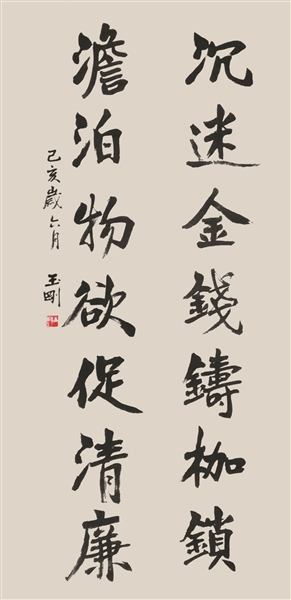 沉迷金錢鑄枷鎖
澹泊物欲促清廉
己亥歲六月 玉剛